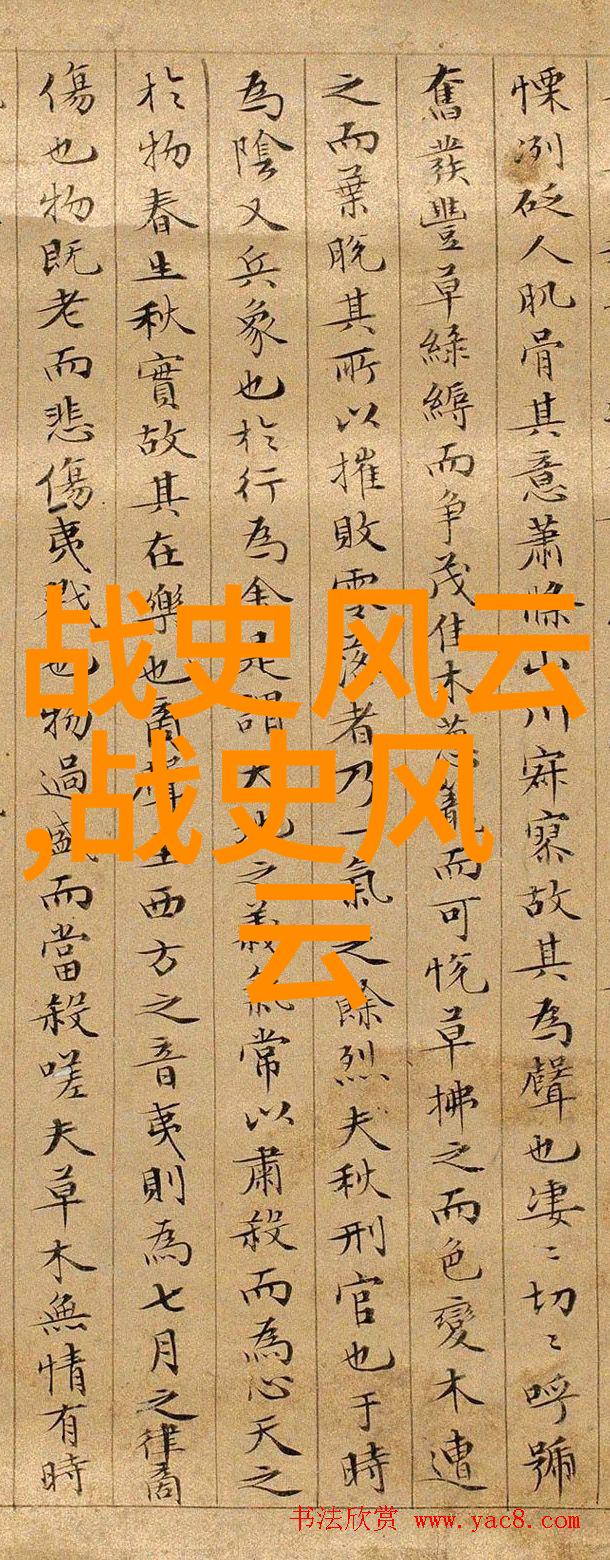 慄冽砭人肌骨其意蕭條山川寂寥故其為聲也凄〻切〻呼號
奮發豐草綠縟而争茂佳木葱蘢而可悅草拂之而色變木遭
之而葉脫其所以摧敗零落者乃一氣之餘烈夫秋刑官也于時
為陰又兵象也於行為金是謂天地之義氣常以肅殺而為心天之
於物春生秋實故其在樂也商聲主西方之音夷則為七月之律商
傷也物既老而悲傷夷戮也物過盛而當殺嗟夫草木無情有時
战史风云
,战史风
云
书法欣赏 www.yac8.com